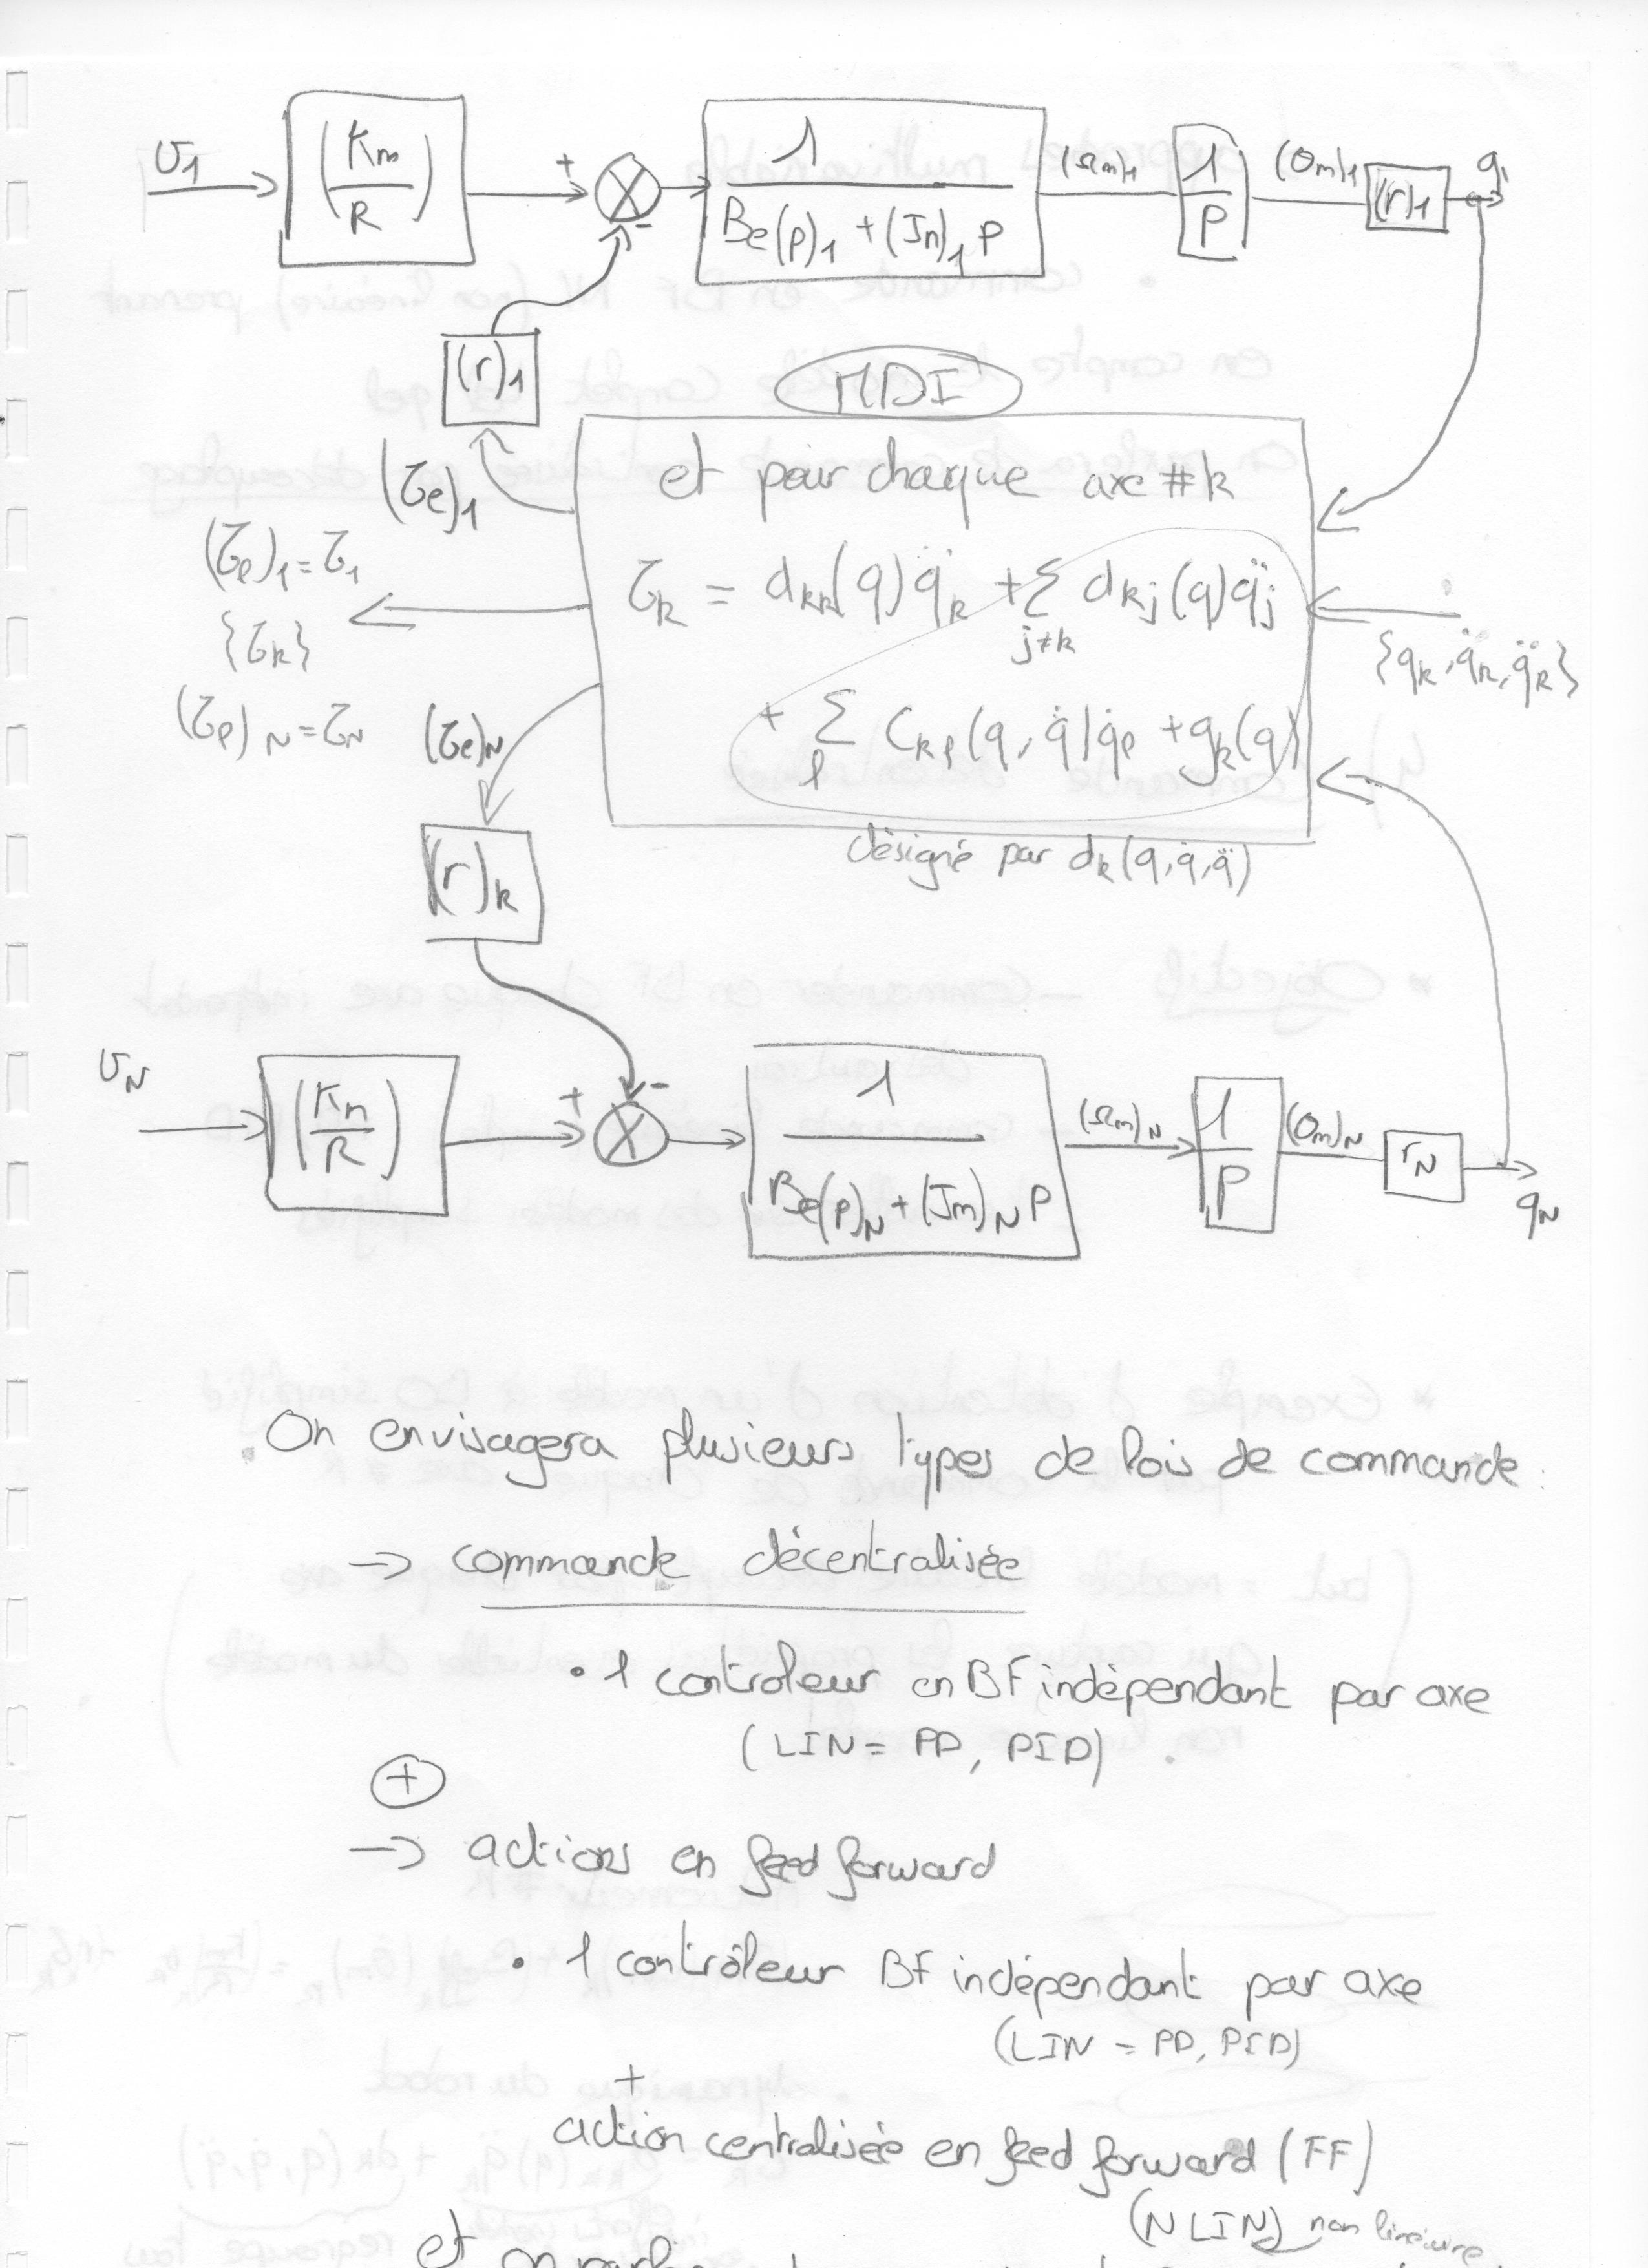 υ1
(Km/R)
+
-
1/(Be(p)1 + (Jm)1 p)
(Ωm)1
1/P
(Θm)1
(r)1
q1
(r)1
MDI
(τe)1
et pour chaque axe #k
(τe)1 = τ1
τk = dkk(q) q̈k + Σ j≠k dkj(q) q̈j
{τk}
{qk, q̇k, q̈k}
(τe)N = τN
(τe)N
+ Σ l Ckl(q, q̇) q̇l + gk(q)
désigné par dk(q, q̇, q̈)
(r)k
υN
(Km/R)
+
-
1/(Be(p)N + (Jm)N P)
(Ωm)N
1/P
(Θm)N
rN
qN
. On envisagera plusieurs types de lois de commande :
→ commande décentralisée
• 1 controleur en BF indépendant par axe
(LIN = PD, PID)
+
→ actions en feed forward
• 1 contrôleur BF indépendant par axe
(LIN = PD, PID)
+
action centralisée en feed forward (FF)
(NLIN) non linéaire
et on